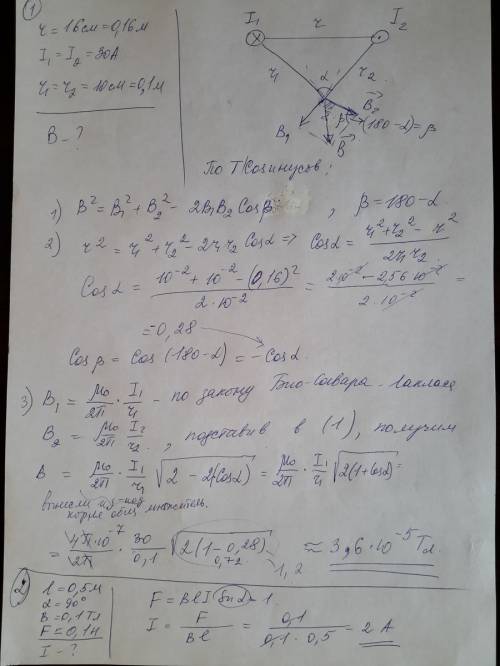 1
r = 16см = 0,16м
I₁ = I₂ = 30А
r₁ = r₂ = 10см = 0,1м
B - ?
I₁ r I₂
r₁ α r₂
B₁ β B₂ (180-α)=β
B
По Т/Косинусов:
1) B² = B₁² + B₂² - 2B₁B₂ Cosβ , β = 180-α
2) r² = r₁² + r₂² - 2r₁r₂ Cosα => Cosα = (r₁² + r₂² - r²)/(2r₁r₂)
Cosα = (10⁻² + 10⁻² - (0,16)²)/(2·10⁻²) = (2·10⁻² - 2,56·10⁻²)/(2·10⁻²) =
= -0,28
Cosβ = Cos(180-α) = -Cosα.
3) B₁ = μ₀/2π · I₁/r₁ - по закону Био-Савара-Лапласа
B₂ = μ₀/2π · I₂/r₂ , подставив в (1), получим
B = μ₀/2π · I₁/r₁ √(2 - 2(Cosα)) = μ₀/2π · I₁/r₁ √(2(1+Cosα)) =
вынесли из-под
корня общ множитель.
= 4π·10⁻⁷/2π · 30/0,1 √(2(1-0,28)) ≈ 3,6·10⁻⁵ Тл.
0,72 1,2
2
l = 0,5м
α = 90°
B = 0,1Тл
F = 0,1н
I - ?
F = BlI Sinα = 1
I = F/Bl = 0,1/(0,1·0,5) = 2 А